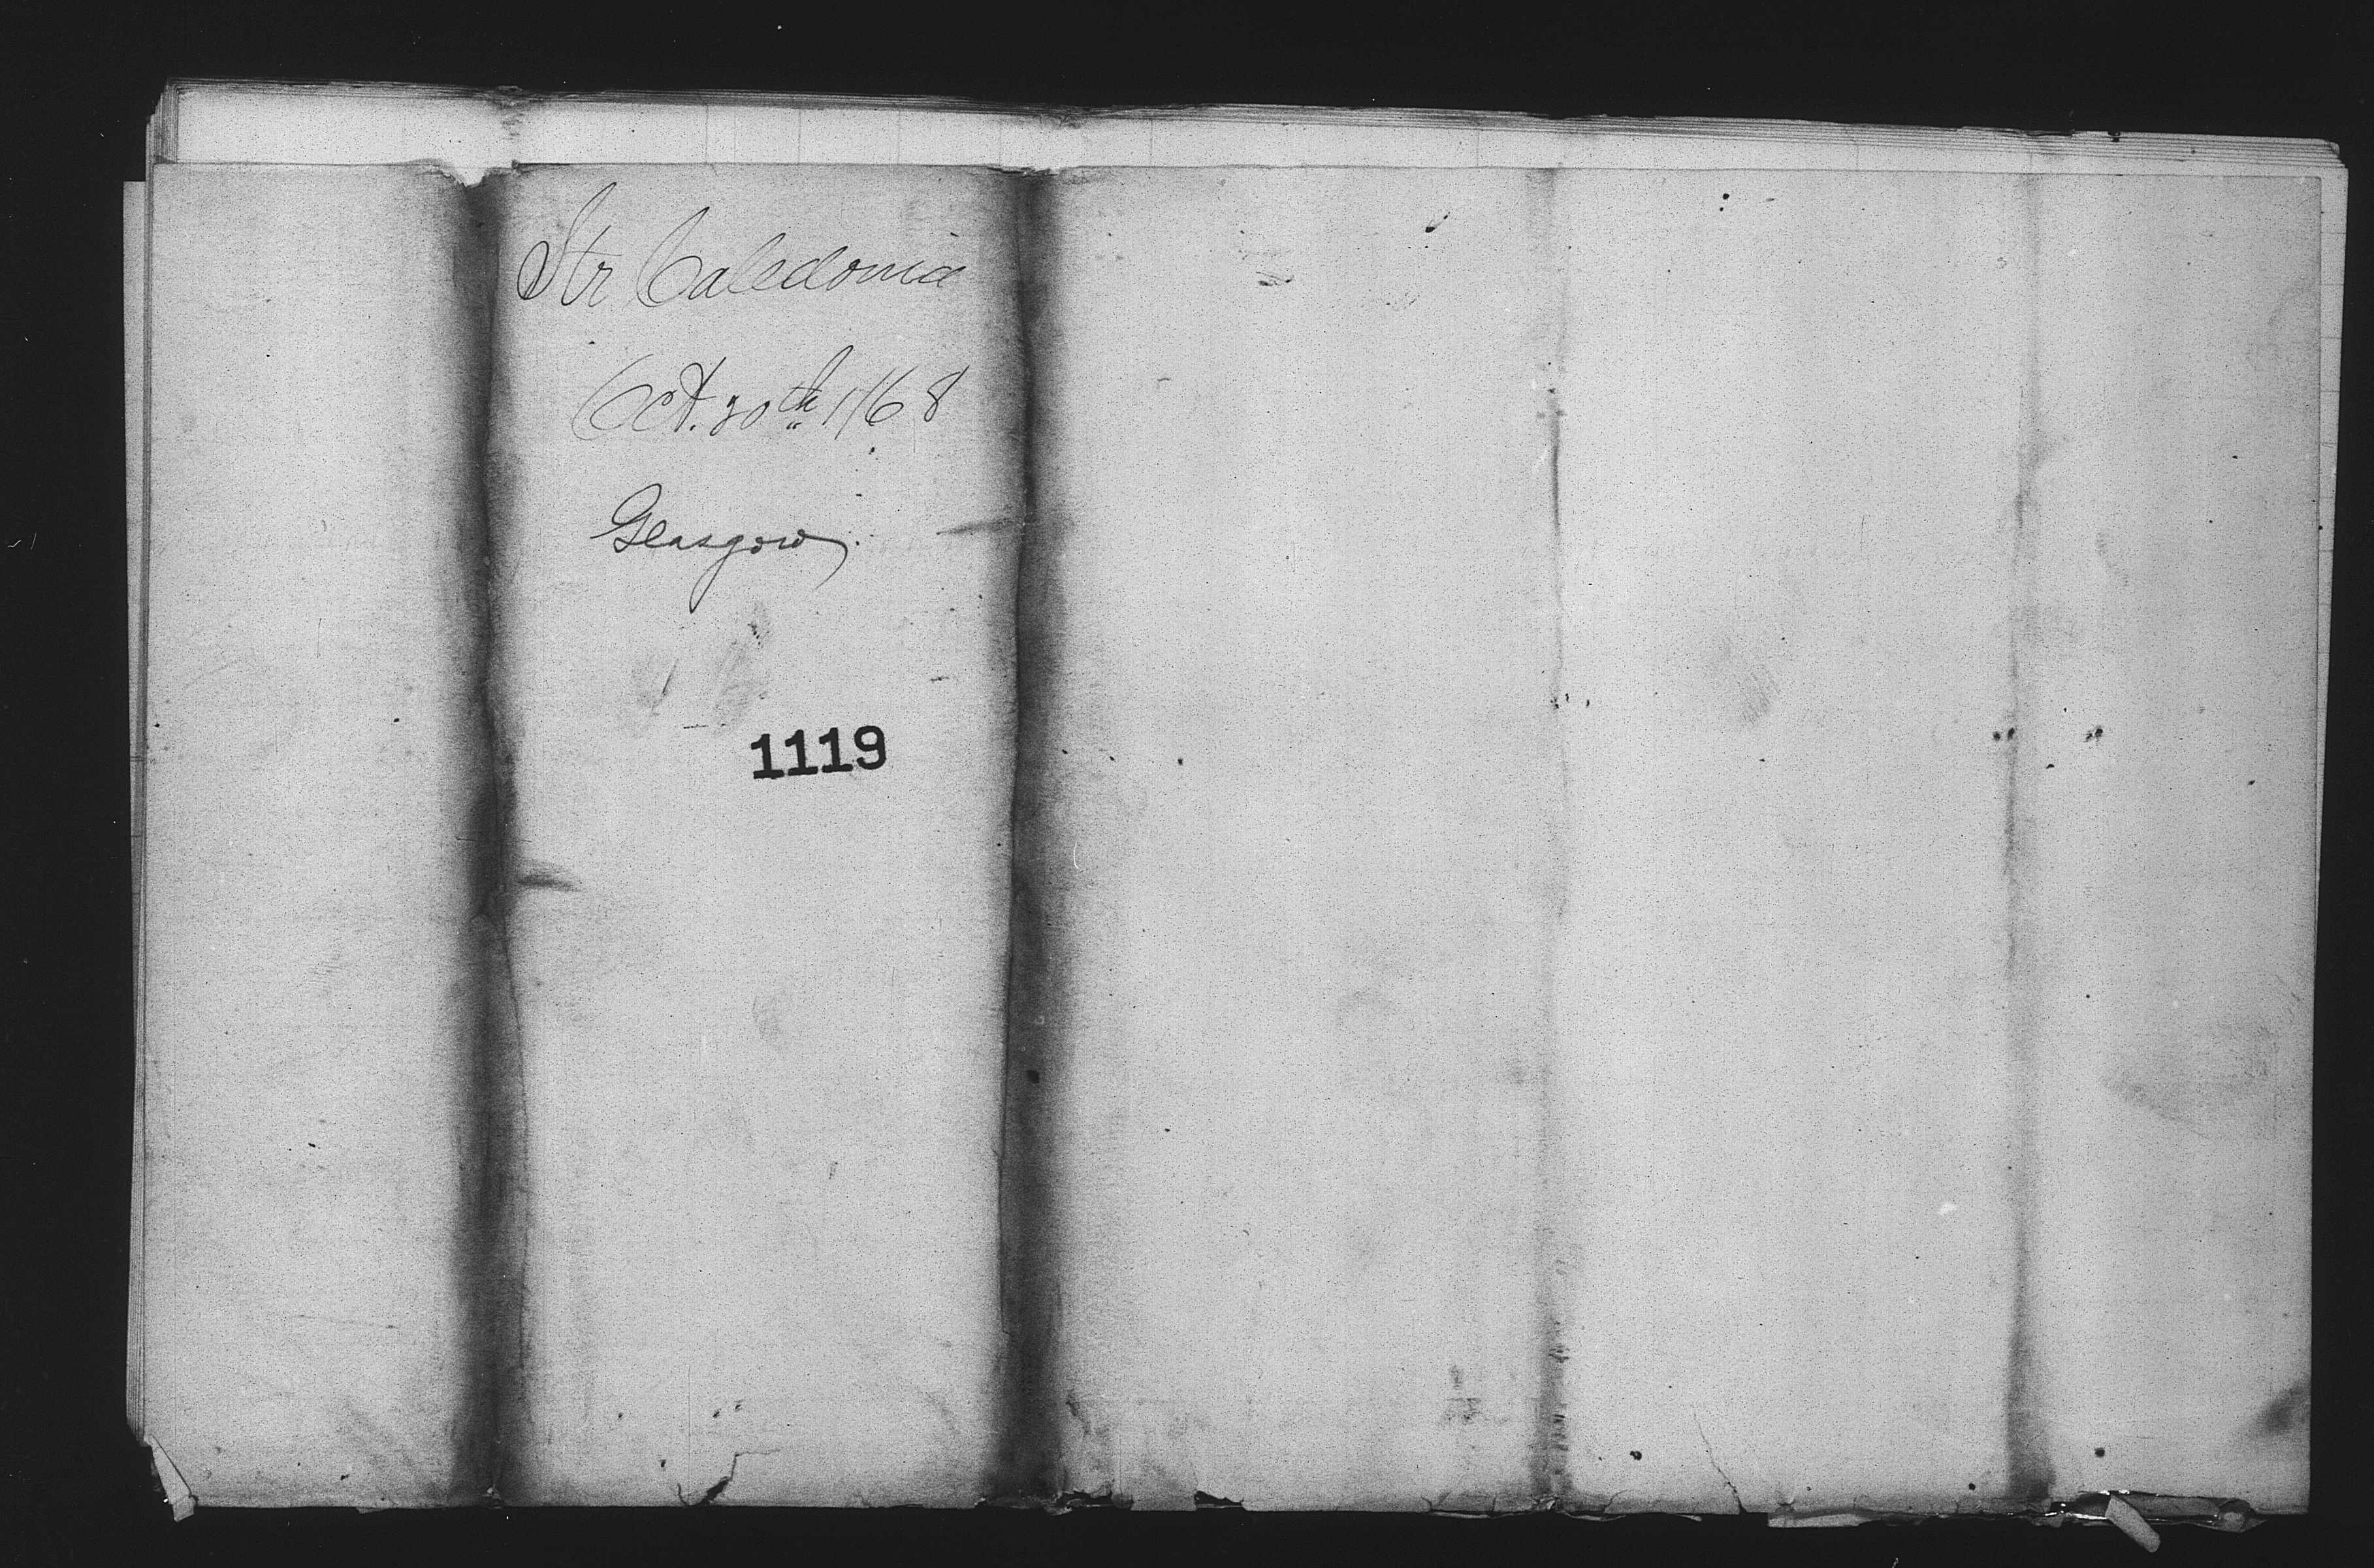 Str Caledonia
Oct. 30th 1868
Glasgow
1119